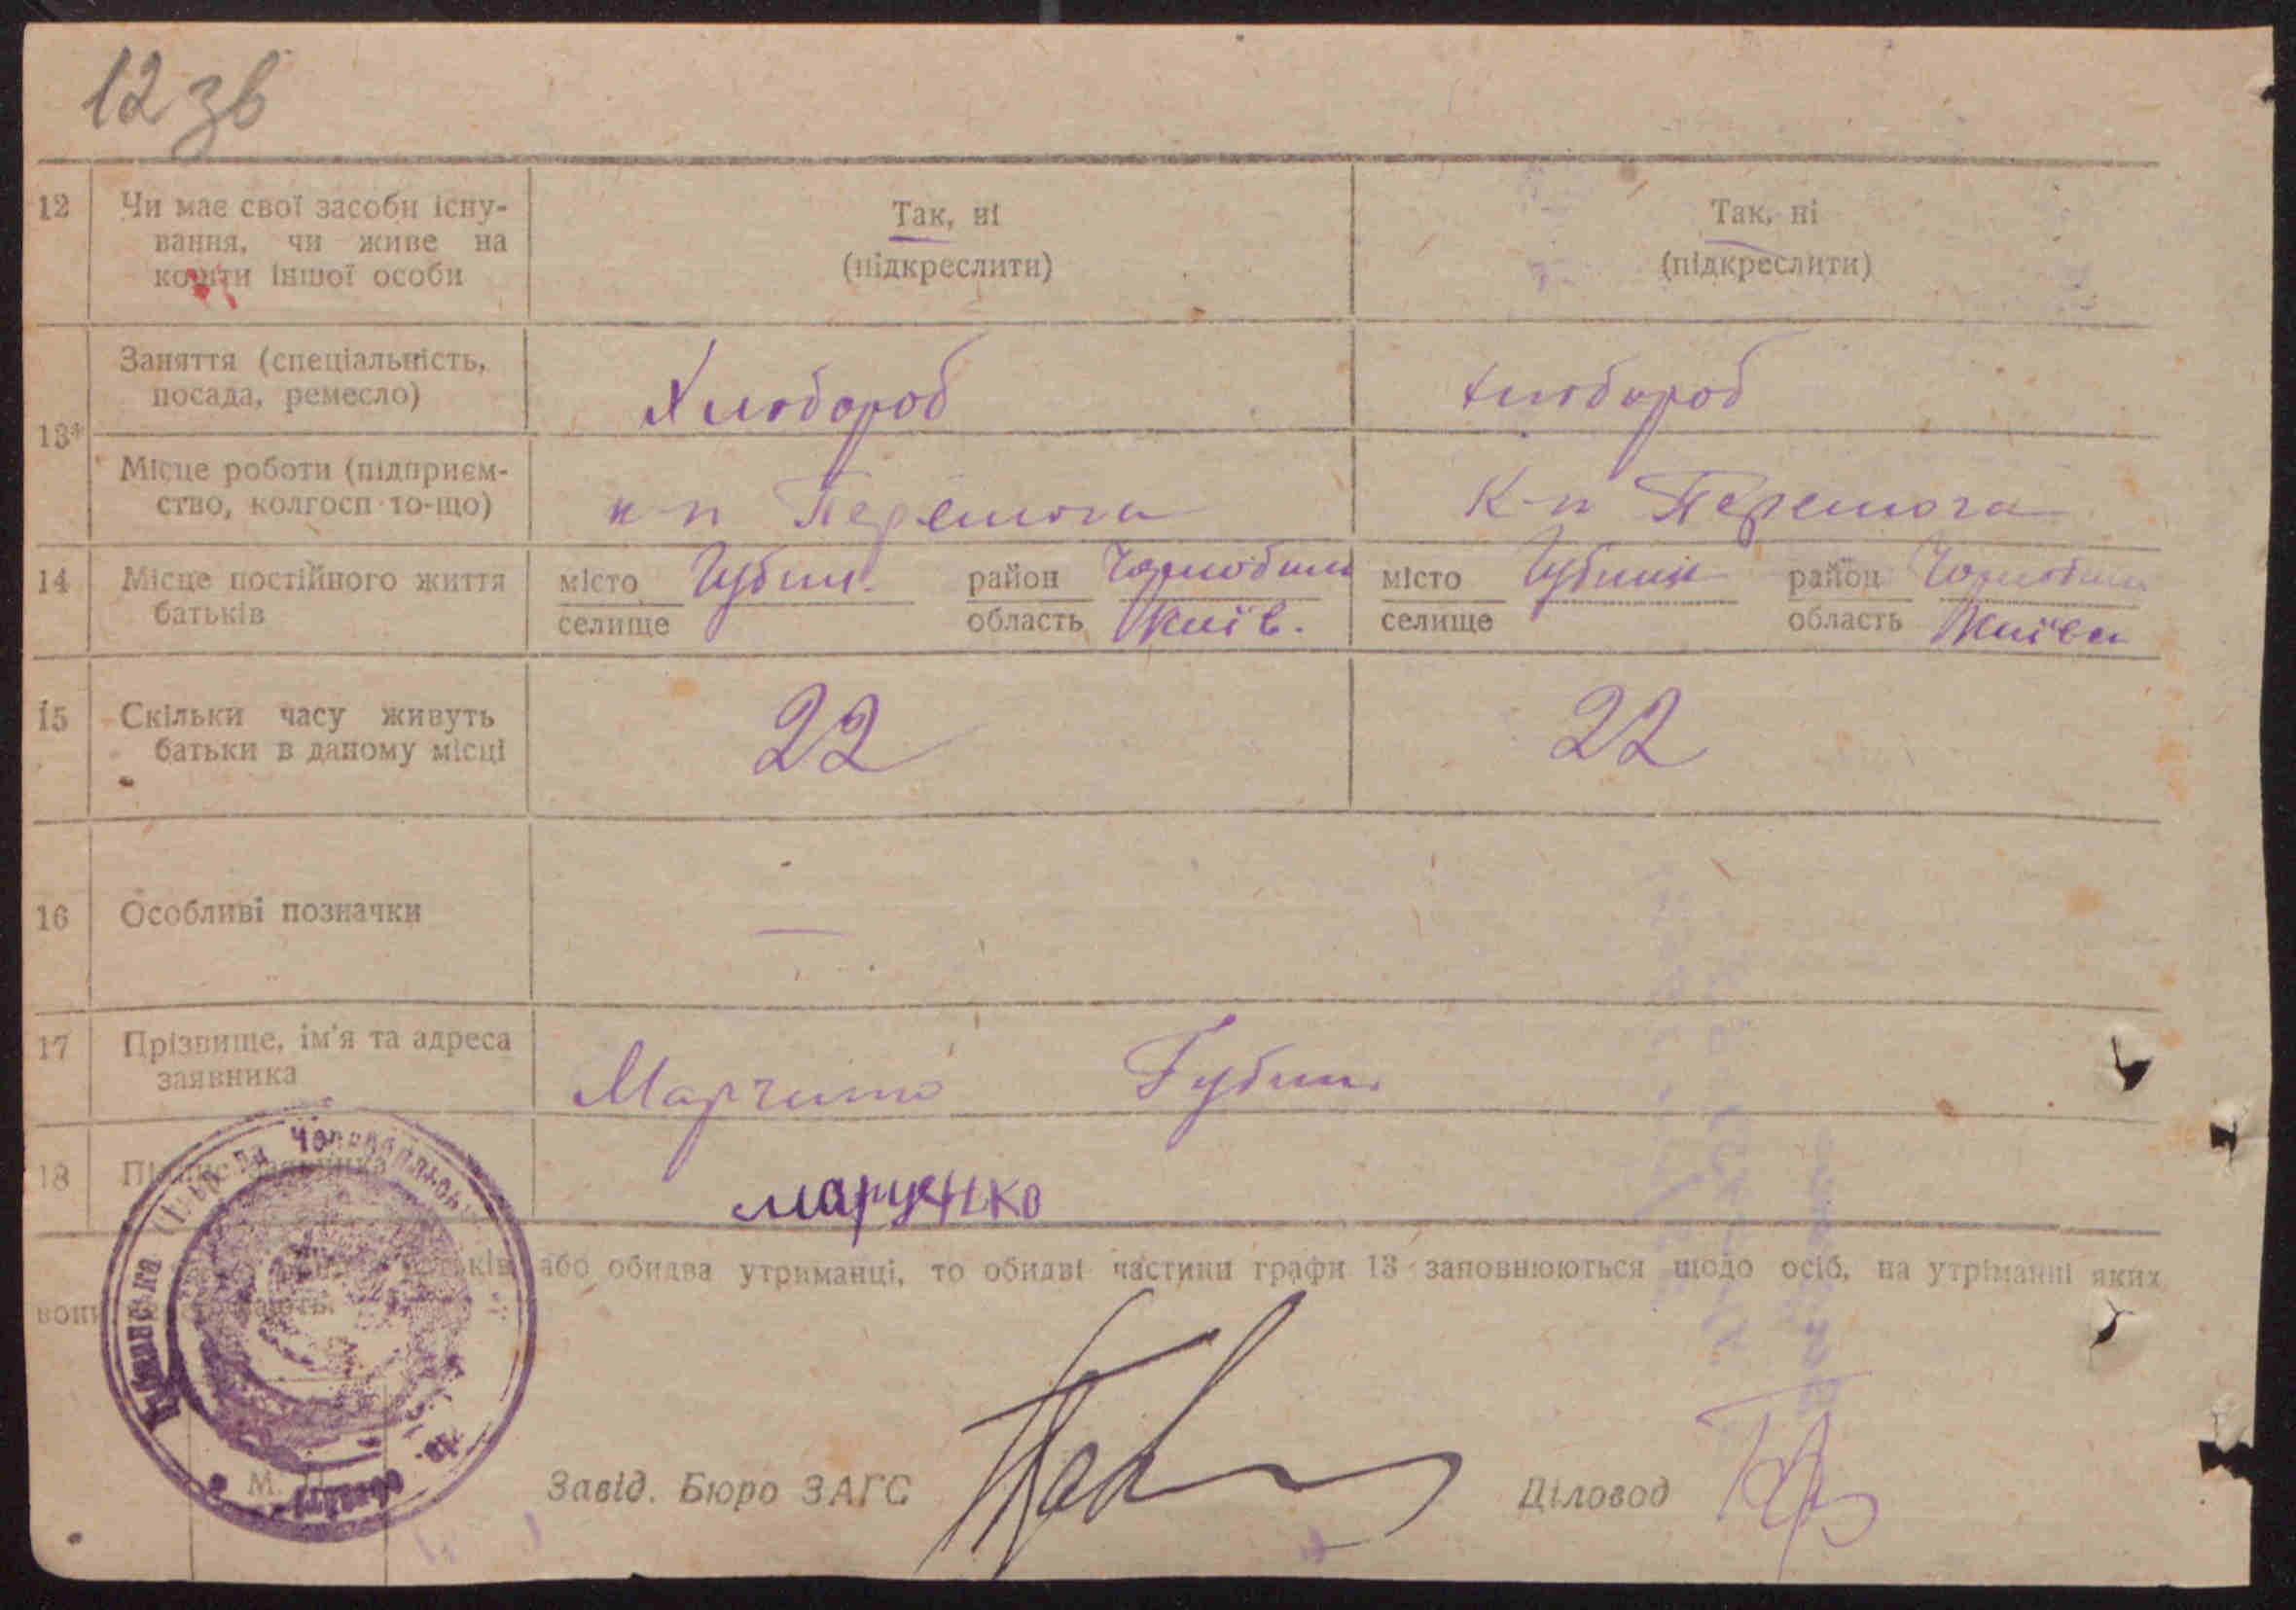 12 зв
12 Чи має свої засоби існу- Так, ні Так, ні
вання, чи живе на (підкреслити) (підкреслити)
кошти іншої особи
Заняття (спеціальність,
посада, ремесло) Хлібороб хлібороб
13*
Місце роботи (підприєм-
ство, колгосп то-що) к-п Перемога К-п Перемога
14 Місце постійного життя місто Губин. район Чорнобил місто Губин район Чорнобил
батьків селище область Київ. селище область Київ
15 Скільки часу живуть 22 22
батьки в даному місці
16 Особливі позначки —
17 Прізвище, ім'я та адреса
заявника Губин
18 Підпис заявника марценко
або обидва утриманці, то обидві частини графи 13 заповнюються щодо осіб, на утриманні яких
вони
М. П.
Завід. Бюро ЗАГС Діловод